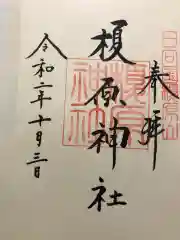 奉拝
榎原神社
令和二年十月三日